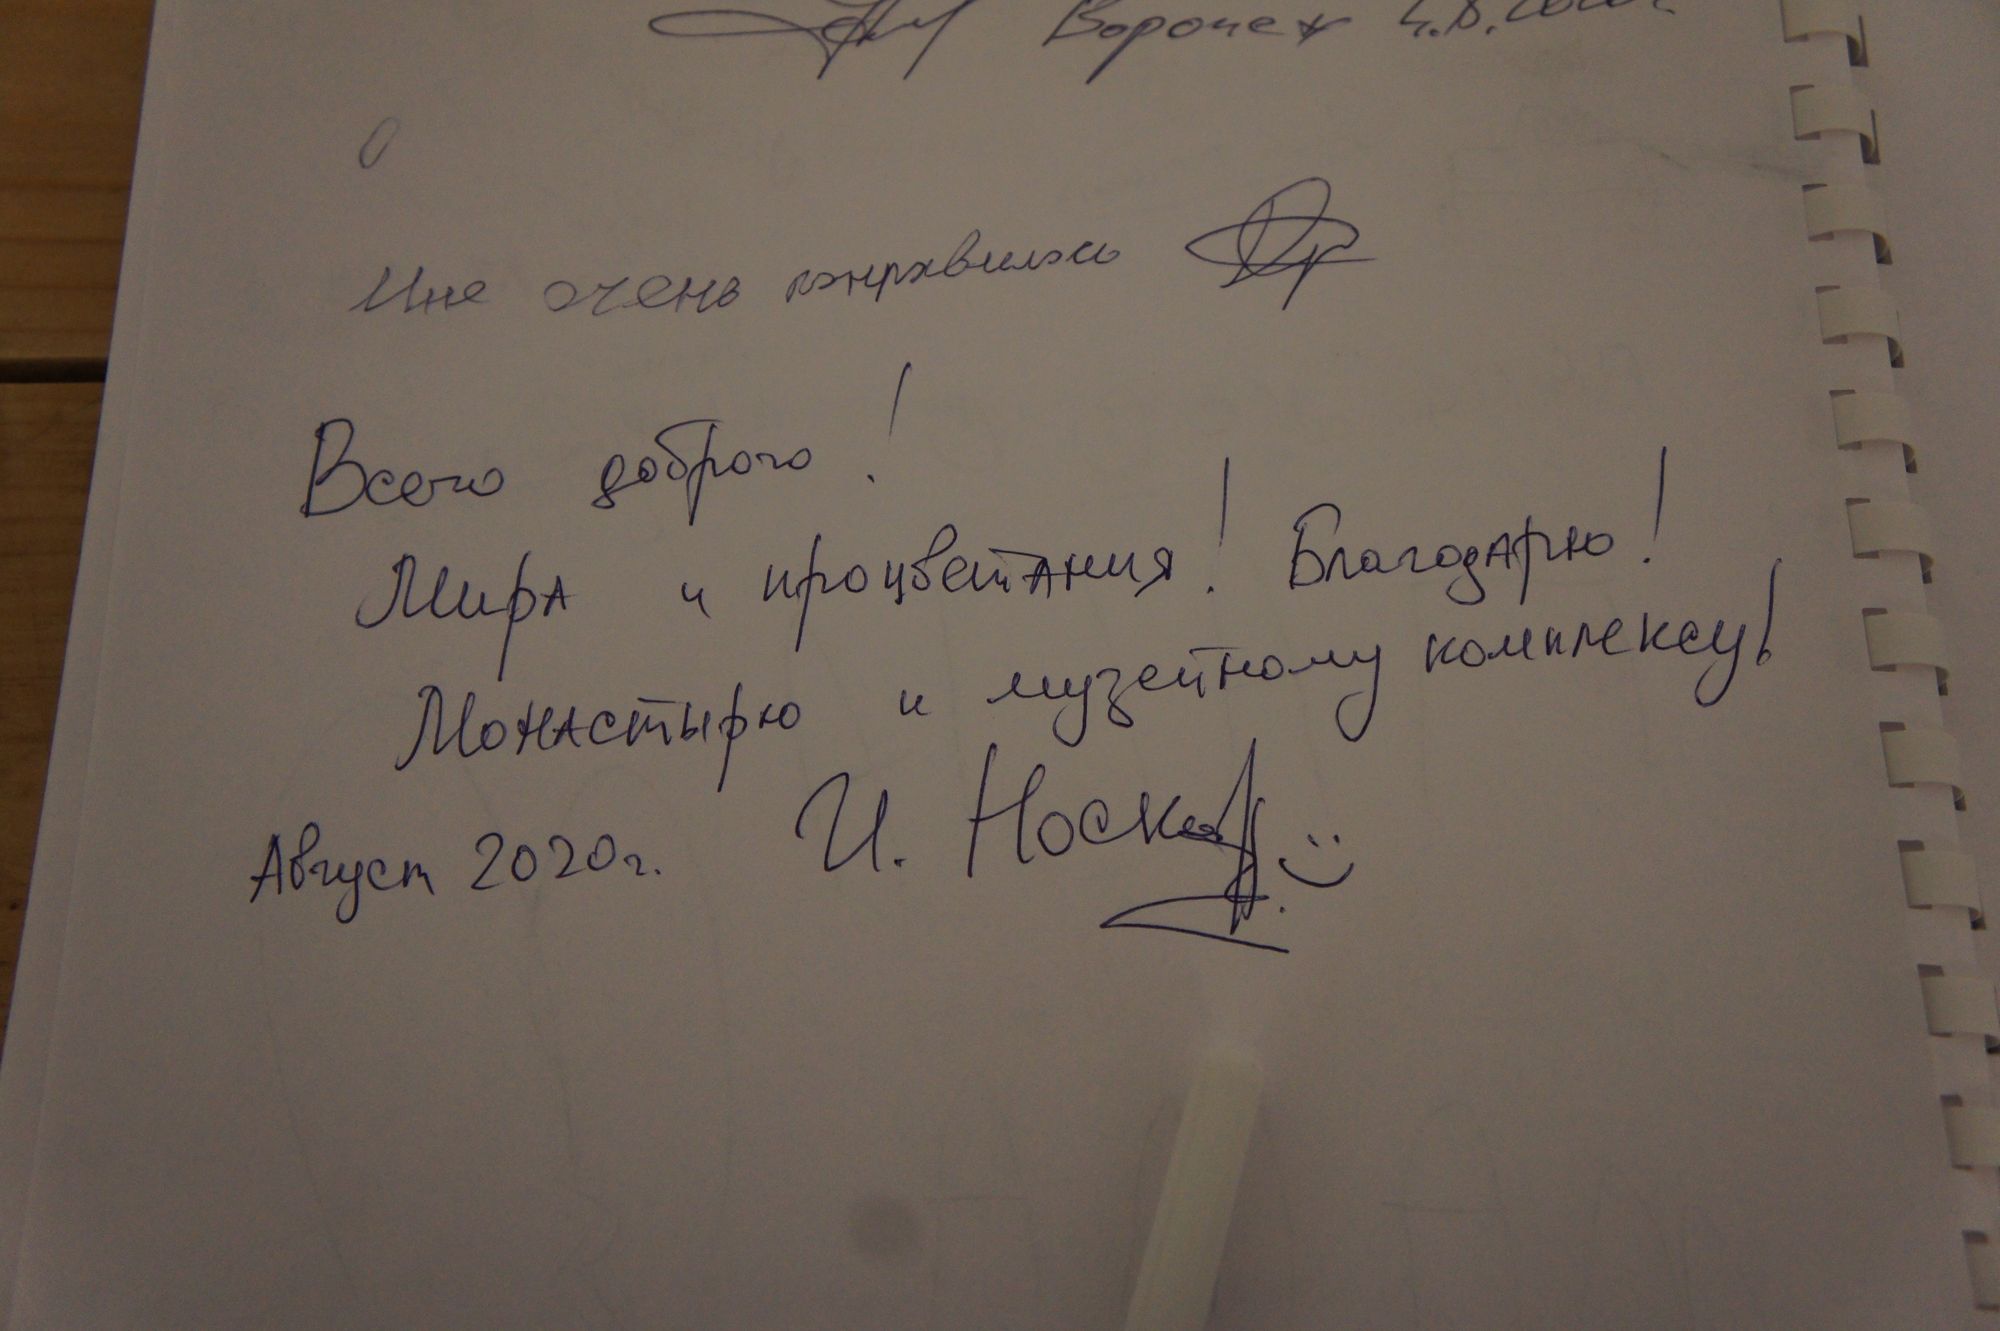 Воронеж
Мне очень понравилось
Всего доброго!
Мира и процветания! Благодарю!
Монастырю и музейному комплексу!
Август 2020г. И. Носков :)